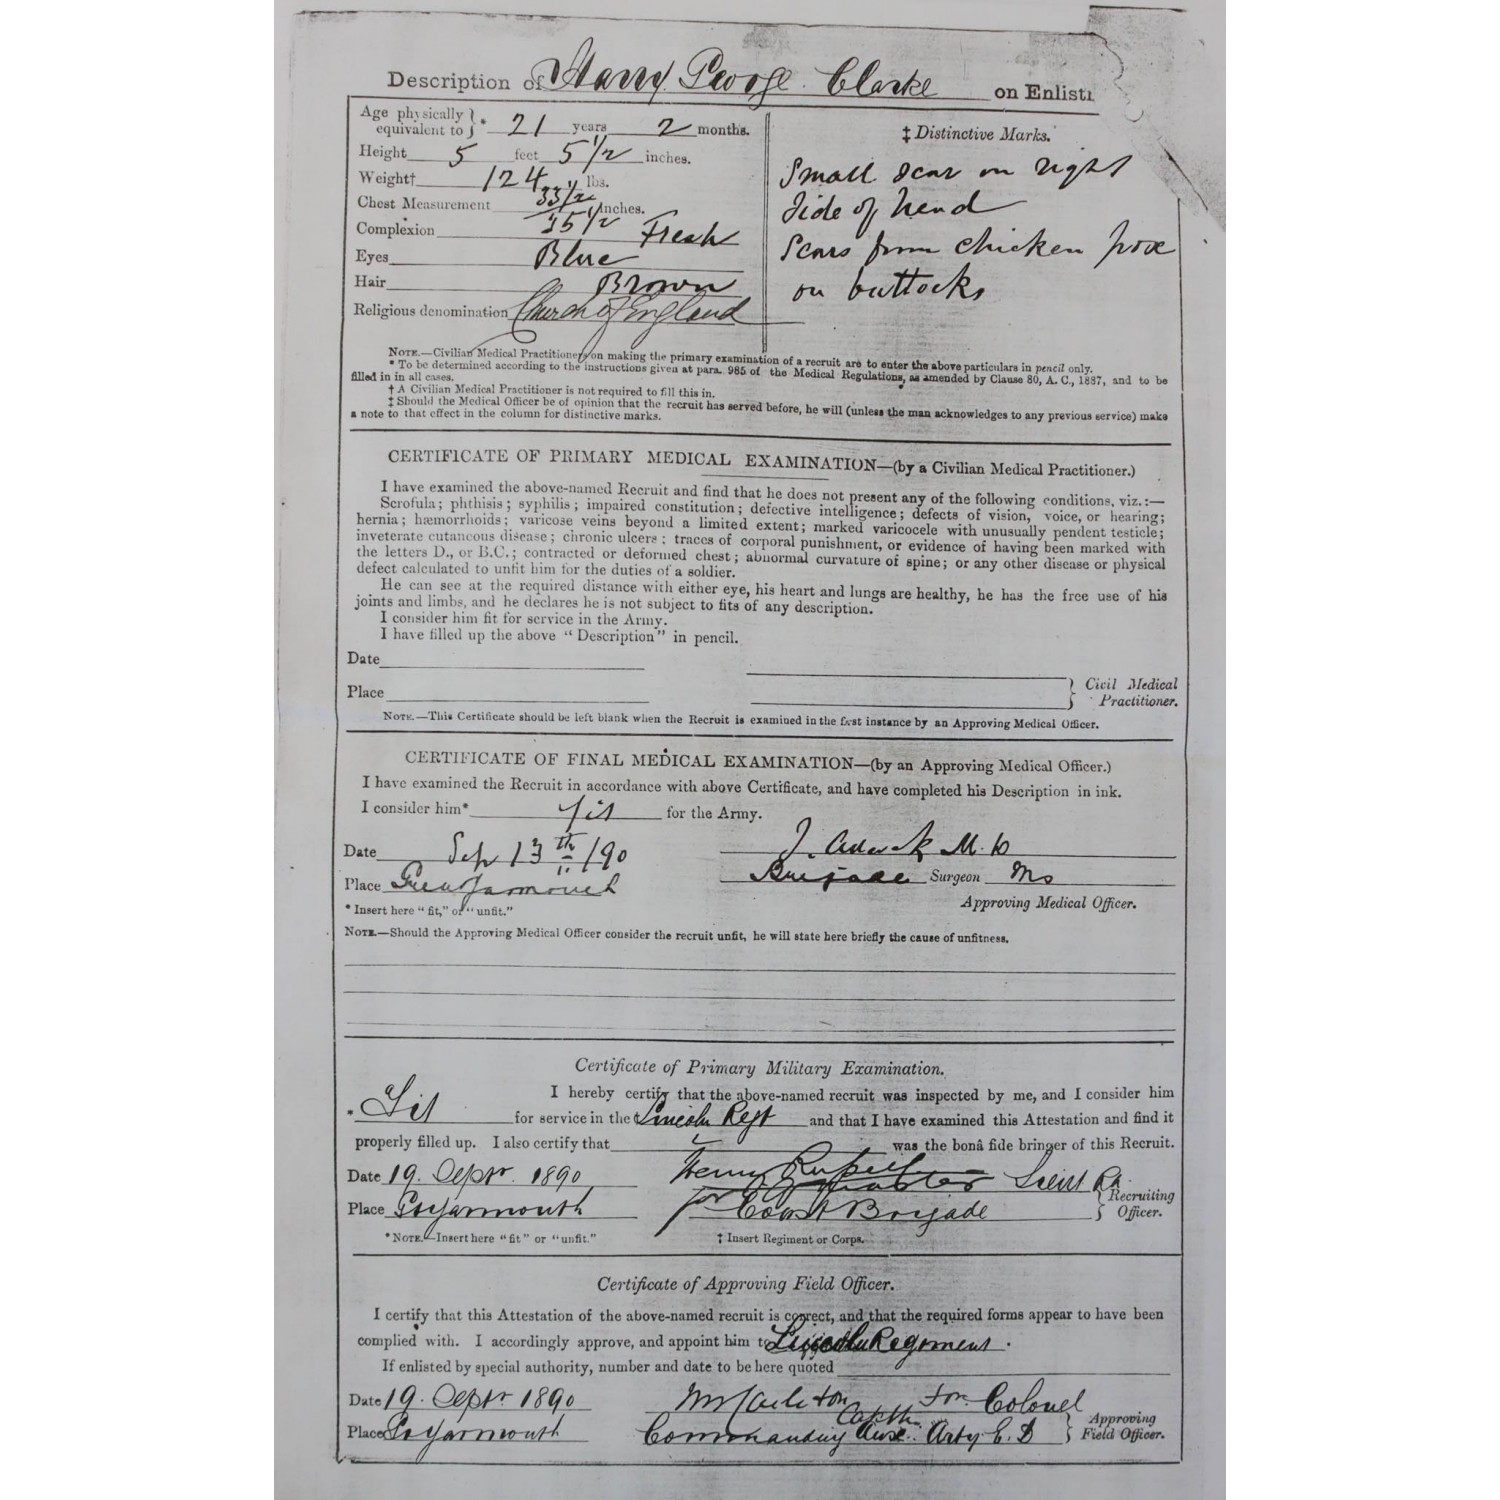 Description of Harry George Clarke on Enlistm
Age physically equivalent to }* 21 years 2 months.
Height 5 feet 5 1/2 inches.
Weight† 124 lbs.
Chest Measurement 33 1/2 35 1/2 Inches.
Complexion Fresh
Eyes Blue
Hair Brown
Religious denomination Church of England
‡ Distinctive Marks.
Small scar on right
side of head
Scars from chicken pox
on buttocks
NOTE.—Civilian Medical Practitioners on making the primary examination of a recruit are to enter the above particulars in pencil only.
* To be determined according to the instructions given at para. 985 of the Medical Regulations, as amended by Clause 80, A. C., 1887, and to be
filled in in all cases.
† A Civilian Medical Practitioner is not required to fill this in.
‡ Should the Medical Officer be of opinion that the recruit has served before, he will (unless the man acknowledges to any previous service) make
a note to that effect in the column for distinctive marks.
CERTIFICATE OF PRIMARY MEDICAL EXAMINATION—(by a Civilian Medical Practitioner.)
I have examined the above-named Recruit and find that he does not present any of the following conditions, viz.:—
Scrofula; phthisis; syphilis; impaired constitution; defective intelligence; defects of vision, voice, or hearing;
hernia; hæmorrhoids; varicose veins beyond a limited extent; marked varicocele with unusually pendent testicle;
inveterate cutaneous disease; chronic ulcers; traces of corporal punishment, or evidence of having been marked with
the letters D., or B.C.; contracted or deformed chest; abnormal curvature of spine; or any other disease or physical
defect calculated to unfit him for the duties of a soldier.
He can see at the required distance with either eye, his heart and lungs are healthy, he has the free use of his
joints and limbs, and he declares he is not subject to fits of any description.
I consider him fit for service in the Army.
I have filled up the above "Description" in pencil.
Date
Place
Civil Medical
Practitioner.
NOTE.—This Certificate should be left blank when the Recruit is examined in the first instance by an Approving Medical Officer.
CERTIFICATE OF FINAL MEDICAL EXAMINATION—(by an Approving Medical Officer.)
I have examined the Recruit in accordance with above Certificate, and have completed his Description in ink.
I consider him* fit for the Army.
Date Sep 13th/90
Place Great Yarmouth
J. M.D
Brigade Surgeon MS
Approving Medical Officer.
* Insert here "fit," or "unfit."
NOTE.—Should the Approving Medical Officer consider the recruit unfit, he will state here briefly the cause of unfitness.
Certificate of Primary Military Examination.
I hereby certify that the above-named recruit was inspected by me, and I consider him
* Fit for service in the † Lincoln Regt and that I have examined this Attestation and find it
properly filled up. I also certify that was the bonâ fide bringer of this Recruit.
Date 19. Septr. 1890 Henry Lieut RA
Place Gt Yarmouth for Coast Brigade
Recruiting
Officer.
* NOTE.—Insert here "fit" or "unfit." † Insert Regiment or Corps.
Certificate of Approving Field Officer.
I certify that this Attestation of the above-named recruit is correct, and that the required forms appear to have been
complied with. I accordingly approve, and appoint him to Lincoln Regiment.
If enlisted by special authority, number and date to be here quoted
Date 19. Septr 1890 Captn for Colonel
Place Gt Yarmouth Commanding Auxe. Arty E. D
Approving
Field Officer.